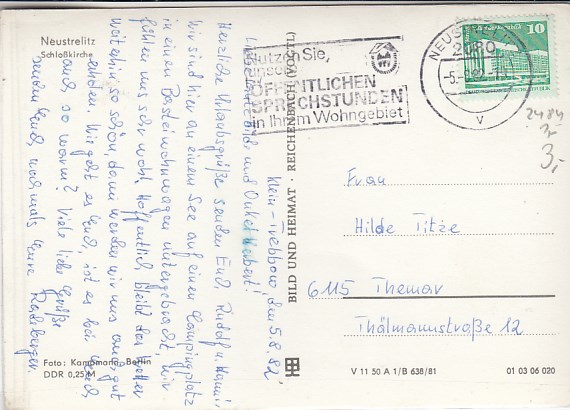 Neustrelitz
Schloßkirche
Klein-Trebbow, den 5.8.82
Liebe Tante Hilde und Onkel Herbert!
Herzliche Urlaubsgrüße senden Euch Rudolf u. Hanni.
Wir sind hier an einem See auf einem Campingplatz
in einem Bastei-wohnwagen untergebracht, wir
fühlen uns sehr wohl. Hoffentlich bleibt das Wetter
weiterhin so schön, damit werden wir uns auch gut
erholen. Wie geht es Euch, ist es bei Euch
auch so warm? Viele liebe Grüße
senden Euch nochmals Eure Radeberger.
Foto: Kampmann, Berlin
DDR 0,25 M
BILD UND HEIMAT · REICHENBACH (VOGTL)
Nutzen Sie,
unsere
ÖFFENTLICHEN
SPRECHSTUNDEN
in Ihrem Wohngebiet
2080
DDR
10
2484
3,-
3,-
Frau
Hilde Titze
6115 Themar
Thälmannstraße 12
V 11 50 A 1/B 638/81
01 03 06 020